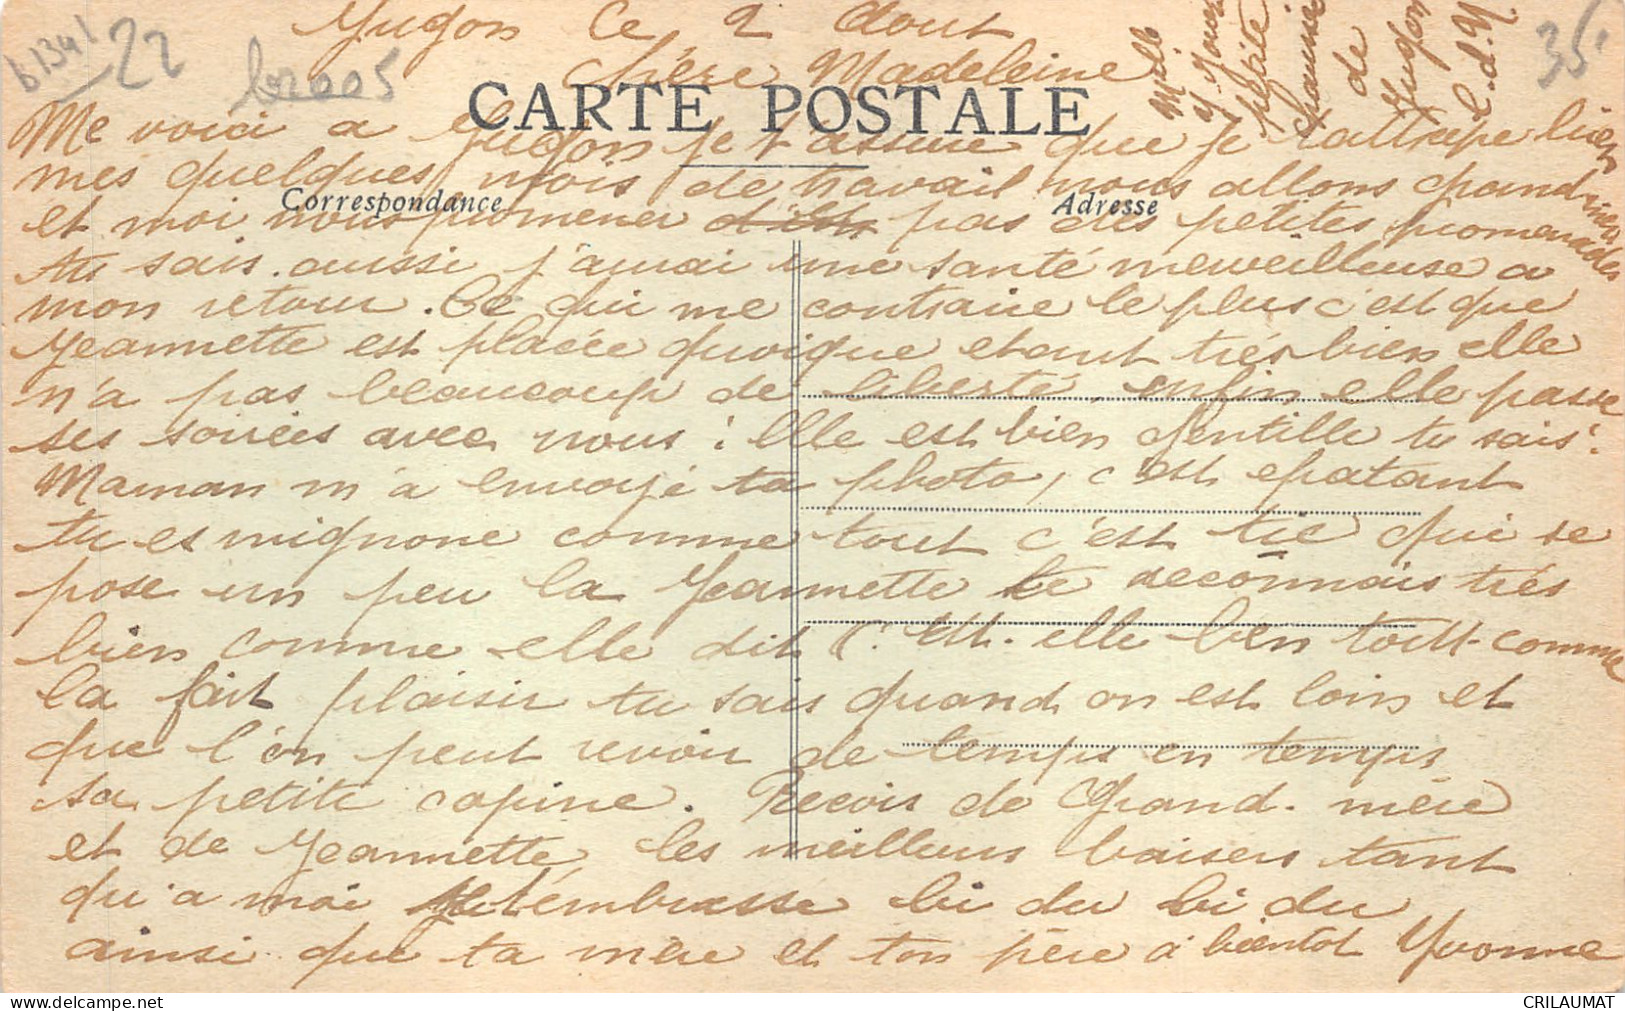 Jugon Ce 2 Aout
Chère Madeleine
CARTE POSTALE
Correspondance
Adresse
Me voici a Jugon je t'assure que je rattrape bien
mes quelques mois de travail nous allons Grand mère
et moi nous promener pas des petites promenades
tu sais. aussi j'aurai une santé merveilleuse a
mon retour. Ce qui me contrarie le plus c'est que
Jeannette est placée quoique etant très bien elle
n'a pas beaucoup de liberté, enfin elle passe
ses soirées avec nous: Elle est bien gentille tu sais.
Maman m'a envoyé ta photo, c'est epatant
tu es mignone comme tout c'est tie qui se
pose un peu la Jeannette te reconnais très
bien comme elle dit C'est. elle ben tout comme
la fait plaisir tu sais quand on est loin et
que l'on peut revoir de temps en temps
sa petite copine. Reçois de Grand. mère
et de Jeannette les meilleurs baisers tant
qu'a moi t'embrasse bi du bi du
ainsi que ta mère et ton père à bientot Yvonne
Melle
Y. 
petite
chaumière
de
Jugon
C.d.N.
22
b1341
br005
35
CRILAUMAT